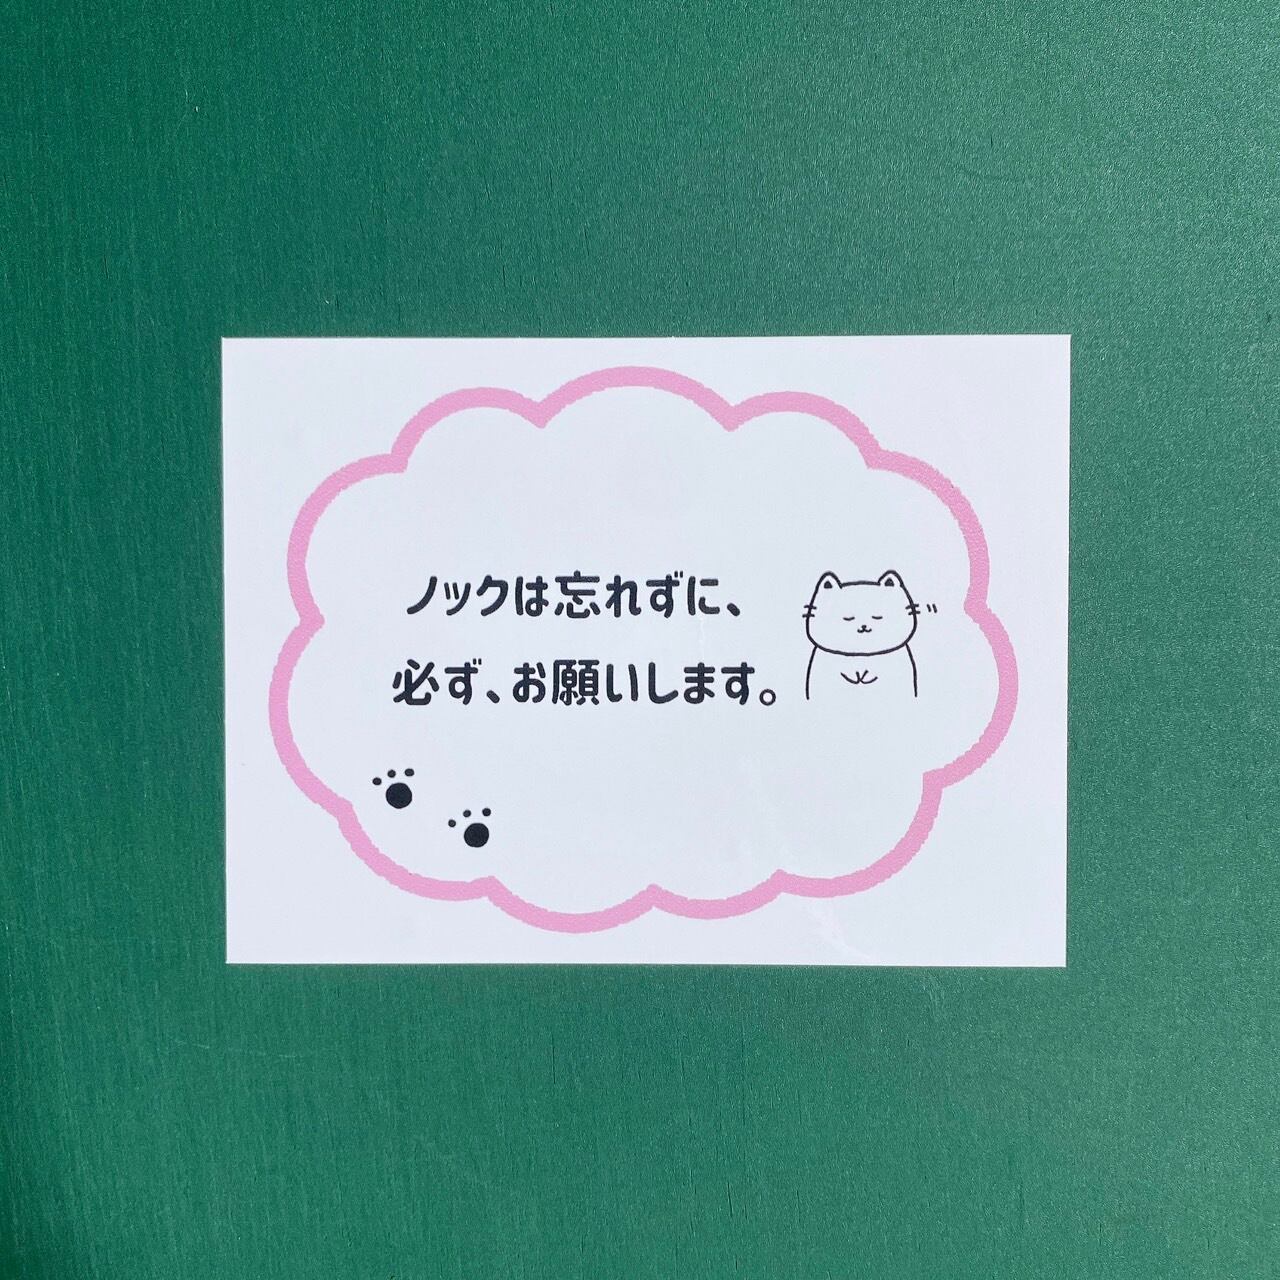 ノックは忘れずに、
必ず、お願いします。